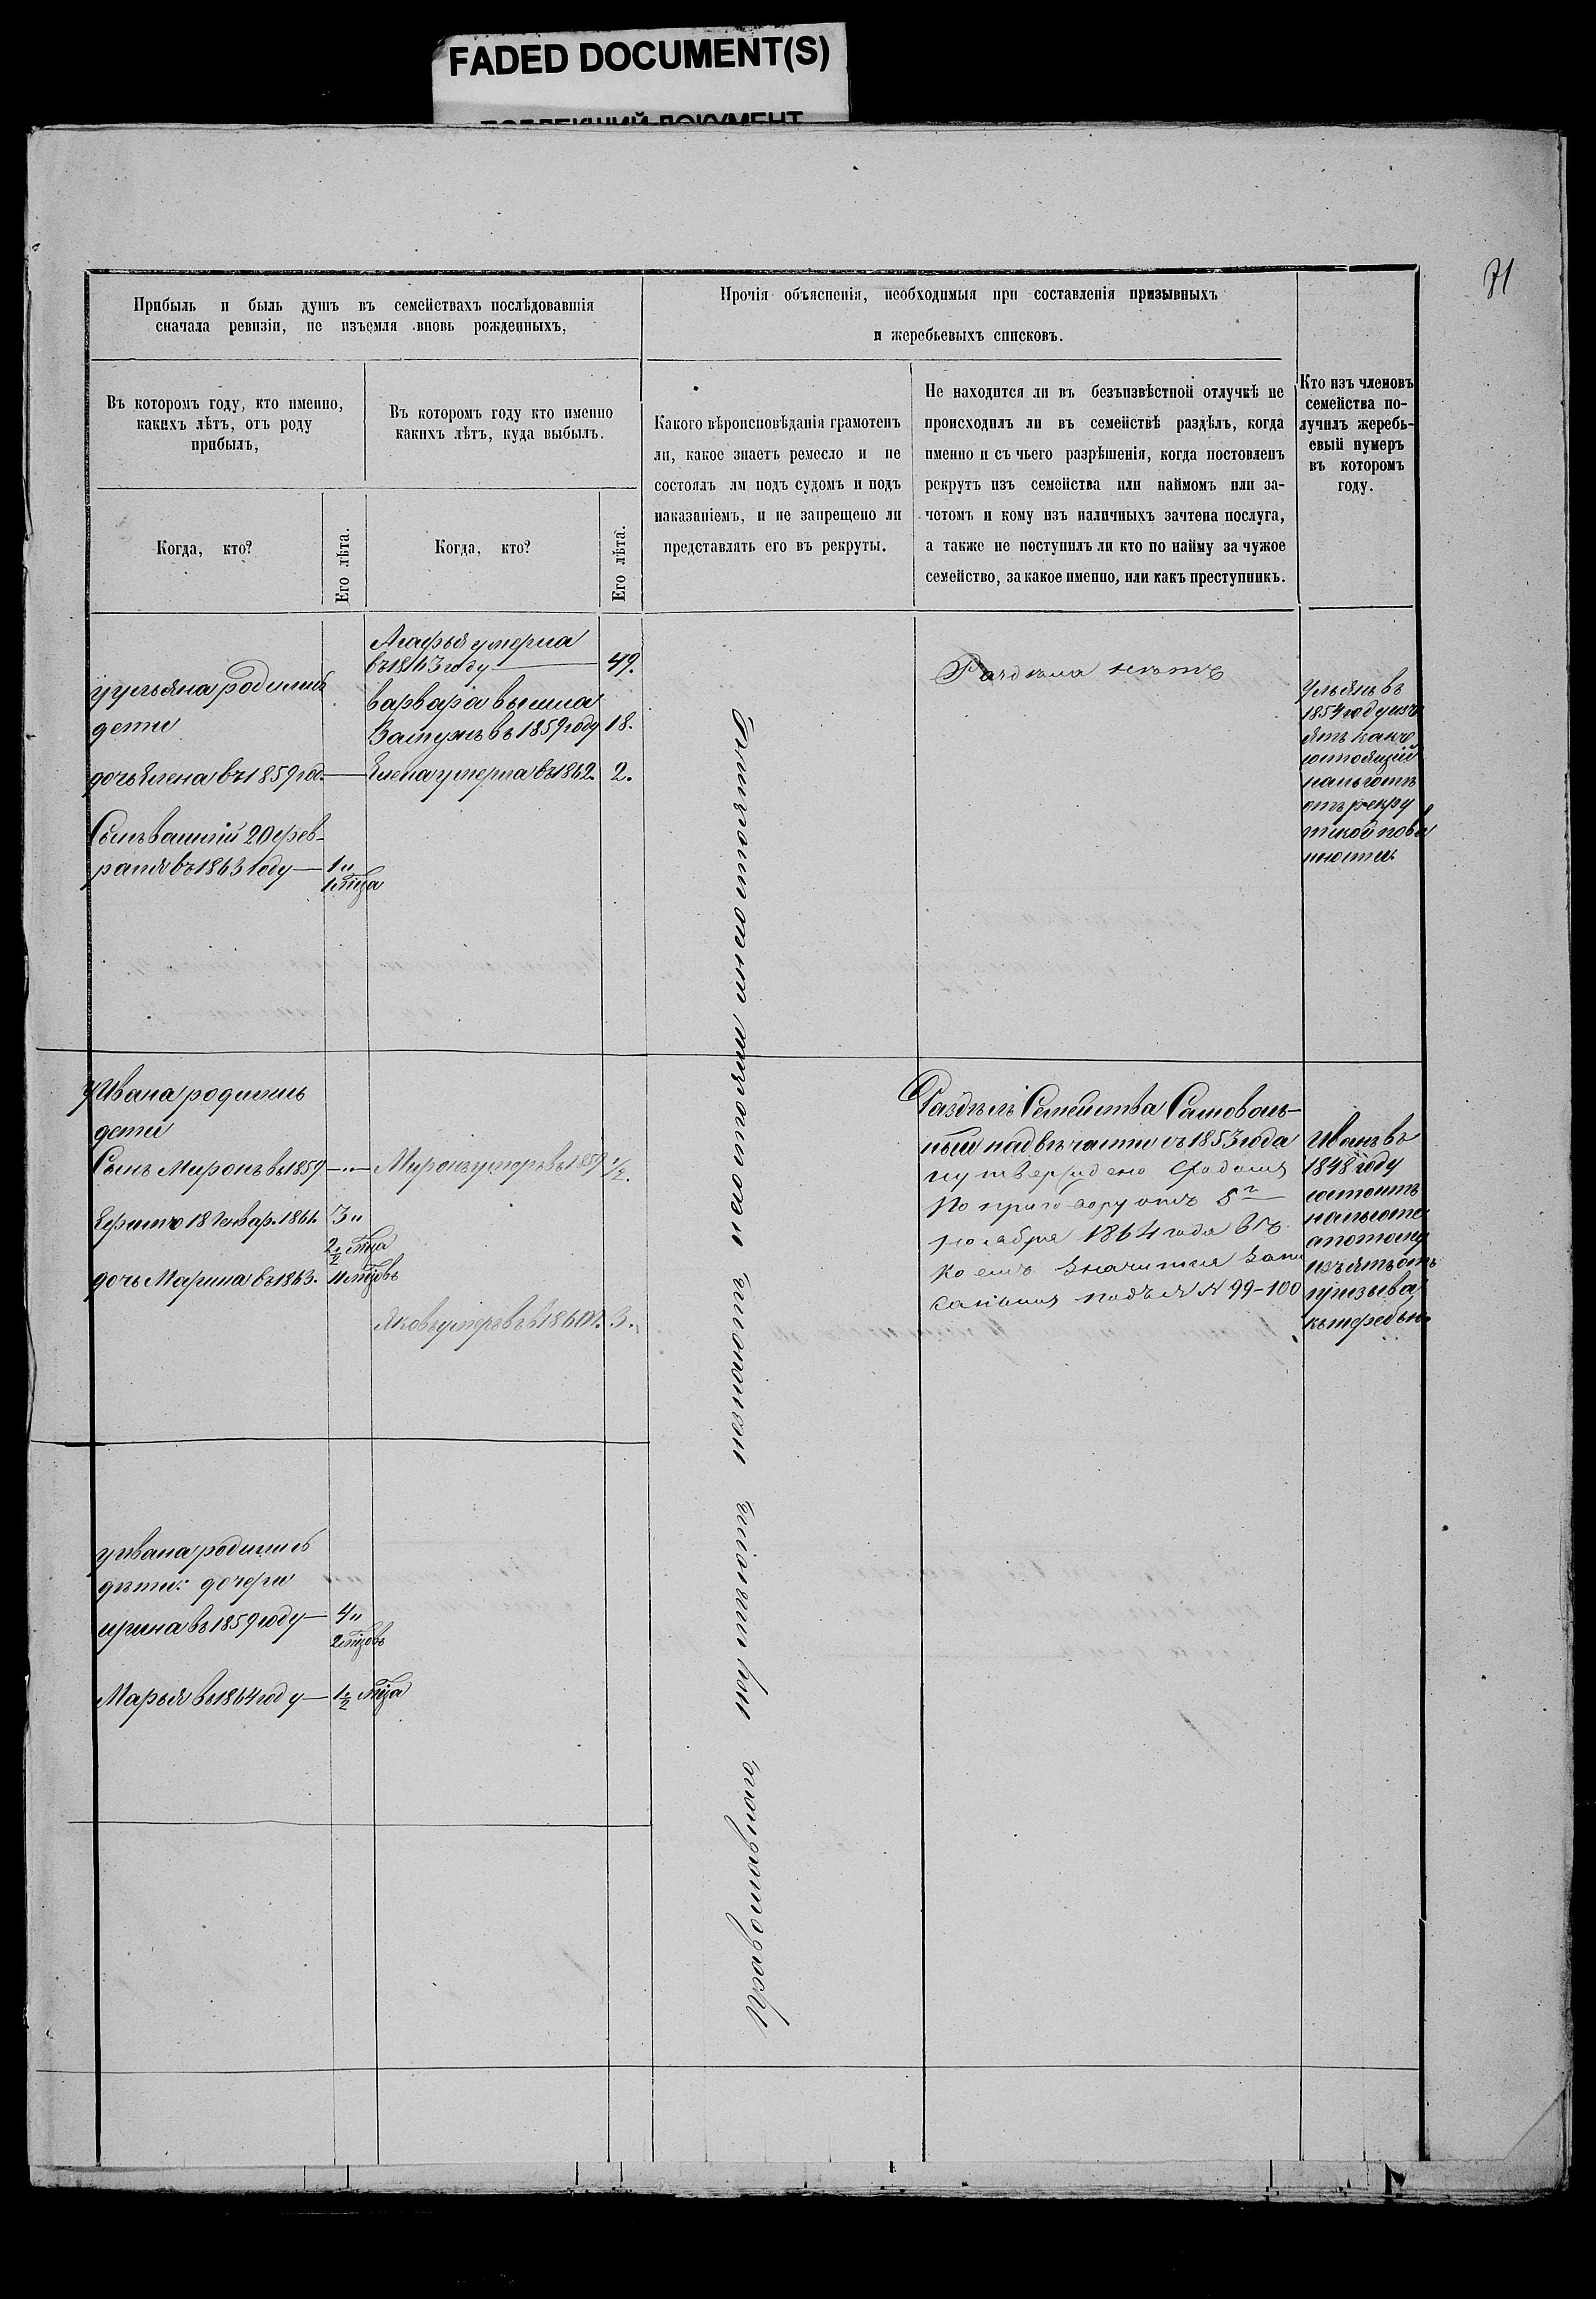 FADED DOCUMENT(S)
71
Прибыль и быль душъ въ семействахъ послѣдовавшія
сначала ревизіи, не изъемля вновь рожденныхъ,
Прочія объясненія, необходимыя при составленія призывныхъ
и жеребьевыхъ списковъ.
Въ которомъ году, кто именно,
какихъ лѣтъ, отъ роду
прибылъ,
Въ которомъ году кто именно
какихъ лѣтъ, куда выбылъ.
Когда, кто?
Его лѣта.
Когда, кто?
Его лѣта.
Какого вѣроисповѣданія грамотенъ
ли, какое знаетъ ремесло и не
состоялъ лм подъ судомъ и подъ
наказаніемъ, и не запрещено ли
представлять его въ рекруты.
Не находится ли въ безъизвѣстной отлучкѣ не
происходилъ ли въ семействѣ раздѣлъ, когда
именно и съ чьего разрѣшенія, когда постовленъ
рекрутъ изъ семейства или наймомъ или за-
четомъ и кому изъ наличныхъ зачтена послуга,
а также не поступилъ ли кто по найму за чужое
семейство, за какое именно, или какъ преступникъ.
Кто изъ членовъ
семейства по-
лучилъ жеребь-
евый нумеръ
въ которомъ
году.
уульяна родились
дети
дочь Елена въ 1859 год.
Сынъ 20 фев-
раля въ 1863 году — 1 и
1 мца
Агафья умерла
въ 1863 году — 49.
варвара вышла
Замужъ въ 1859 году 18.
Елена умерла въ 1862. 2.
Раздела нетъ
Ульянъ въ
1854 году изъ
ятъ какъ
состоящій
нальготе
отъ рекру
тской пови
нности
у Ивана родились
дети
Сынъ Миронъ въ 1859 — Миронъ умеръ в 1859 1/2.
Ефимъ 18 Генвар. 1861. 3 и
2 1/2 мца
дочь Марина въ 1863. 11 мцовъ
Яковъ умеръ въ 1860 г. 3.
Раздѣлъ Семейства Самоволь-
ный надвѣ части съ 1853 года
и утверждено
По приговору отъ 5го
ноября 1864 года въ
коемъ Значится
подъ № 99-100
Иванъ въ
1848 году
состоитъ
нальготе
апотому
изъятъ отъ
призыва
къжеребью
у ивана родились
дѣти: дочери
ирина въ 1859 году — 4 и
2 мцовъ
Марья въ 1864 году — 1 1/2 мца
Православного,